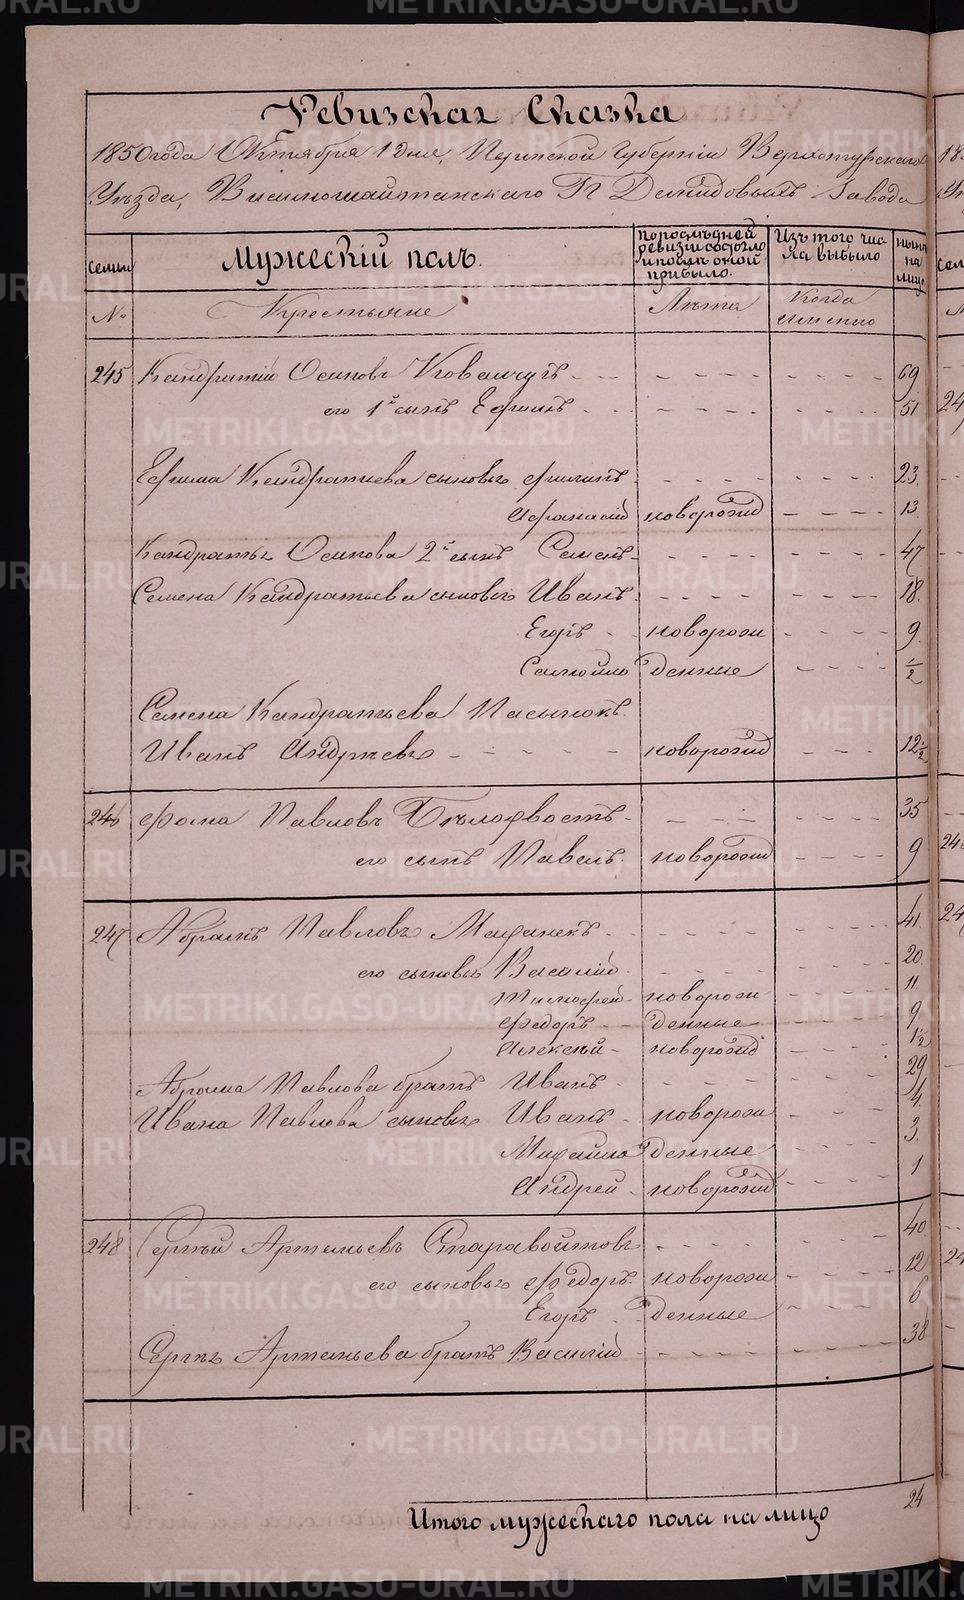 Ревизская Сказка
1850 года Октября 1 дня, Пермской Губерніи Верхотурскаго
Уѣзда, Висимошайтанскаго П Демидовыхъ Завода
семьи
Мужескій полъ.
По последней ревизіи состояло и после оной прибыло.
Изъ того числа выбыло
ныне на лицо
№
Крестьяне
Лѣта
Когда именно
245 Кандратій Осиповъ 69
его 1й сынъ Ефимъ 51
Ефима Кандратьева сыновья Филипъ 23.
Афанасій новорожд 13
Кандратья Осипова 2й сынъ Семенъ 47
Семена Кандратьева сыновья Иванъ 18.
Егоръ новорож 9.
Самойло денные 1/2
Семена Кандратьева Пасынокъ
Иванъ Андреевъ новорожд 12 1/2
246 Фома Павловъ Бѣлохвостъ 35
его сынъ Павелъ новорожд 9
247 Абрамъ Павловъ 41
его сыновья Василій 20
Тимофей новорож 11
Федоръ денные 9
Алексѣй новорожд 1 1/2
Абрама Павлова братъ Иванъ 29
Ивана Павлова сыновья Иванъ новорож 4.
Михайло денные 3.
Андрей новорожд 1
248 Сергѣй Артемьевъ Старавойтовъ 40
его сыновья Федоръ новорож 12
Егоръ денные 6
Сергѣя Артемьева братъ Василій 38
24
Итого мужескаго пола на лицо
METRIKI.GASO-URAL.RU